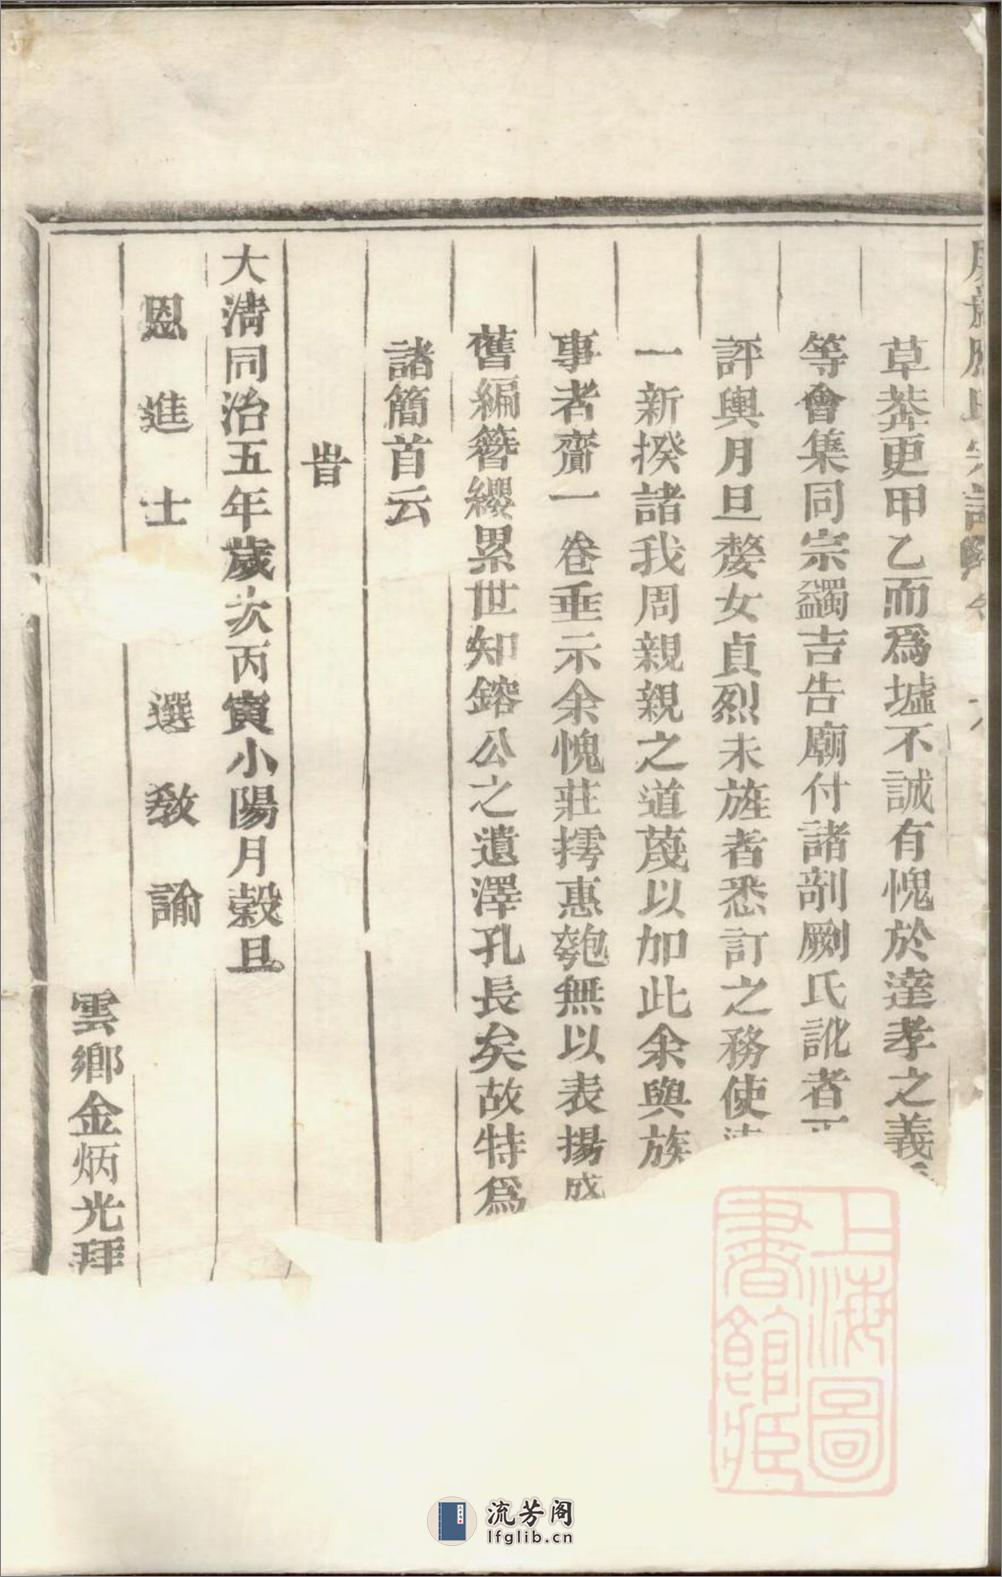 草莽更甲乙而爲墟不誠有愧於達孝之義
等會集同宗蠲吉告廟付諸剞劂氏訛者正
評與月旦嫠女貞烈未旌者悉訂之務使
一新揆諸我周親親之道蔑以加此余與族
事者齎一卷垂示余愧莊摴惠匏無以表揚盛
舊編簪纓累世知鎔公之遺澤孔長矣故特爲
諸簡首云
旹
大清同治五年歲次丙寅小陽月穀旦
恩進士 選教諭
雲鄉金炳光拜
上海圖書館藏
流芳阁
lfglib.cn